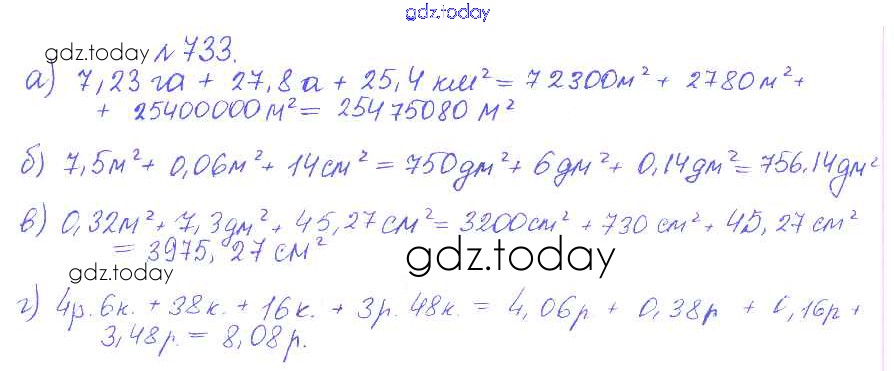 gdz.today
gdz.today № 733.
а) 7,23 га + 27,8 а + 25,4 км² = 72300 м² + 2780 м² +
+ 25400000 м² = 25475080 м²
б) 7,5 м² + 0,06 м² + 14 см² = 750 дм² + 6 дм² + 0,14 дм² = 756,14 дм²
в) 0,32 м² + 7,3 дм² + 45,27 см² = 3200 см² + 730 см² + 45,27 см²
= 3975,27 см²
gdz.today
gdz.today
г) 4р. 6к. + 38к. + 16к. + 3р. 48к. = 4,06р + 0,38р + 0,16р +
3,48р. = 8,08р.